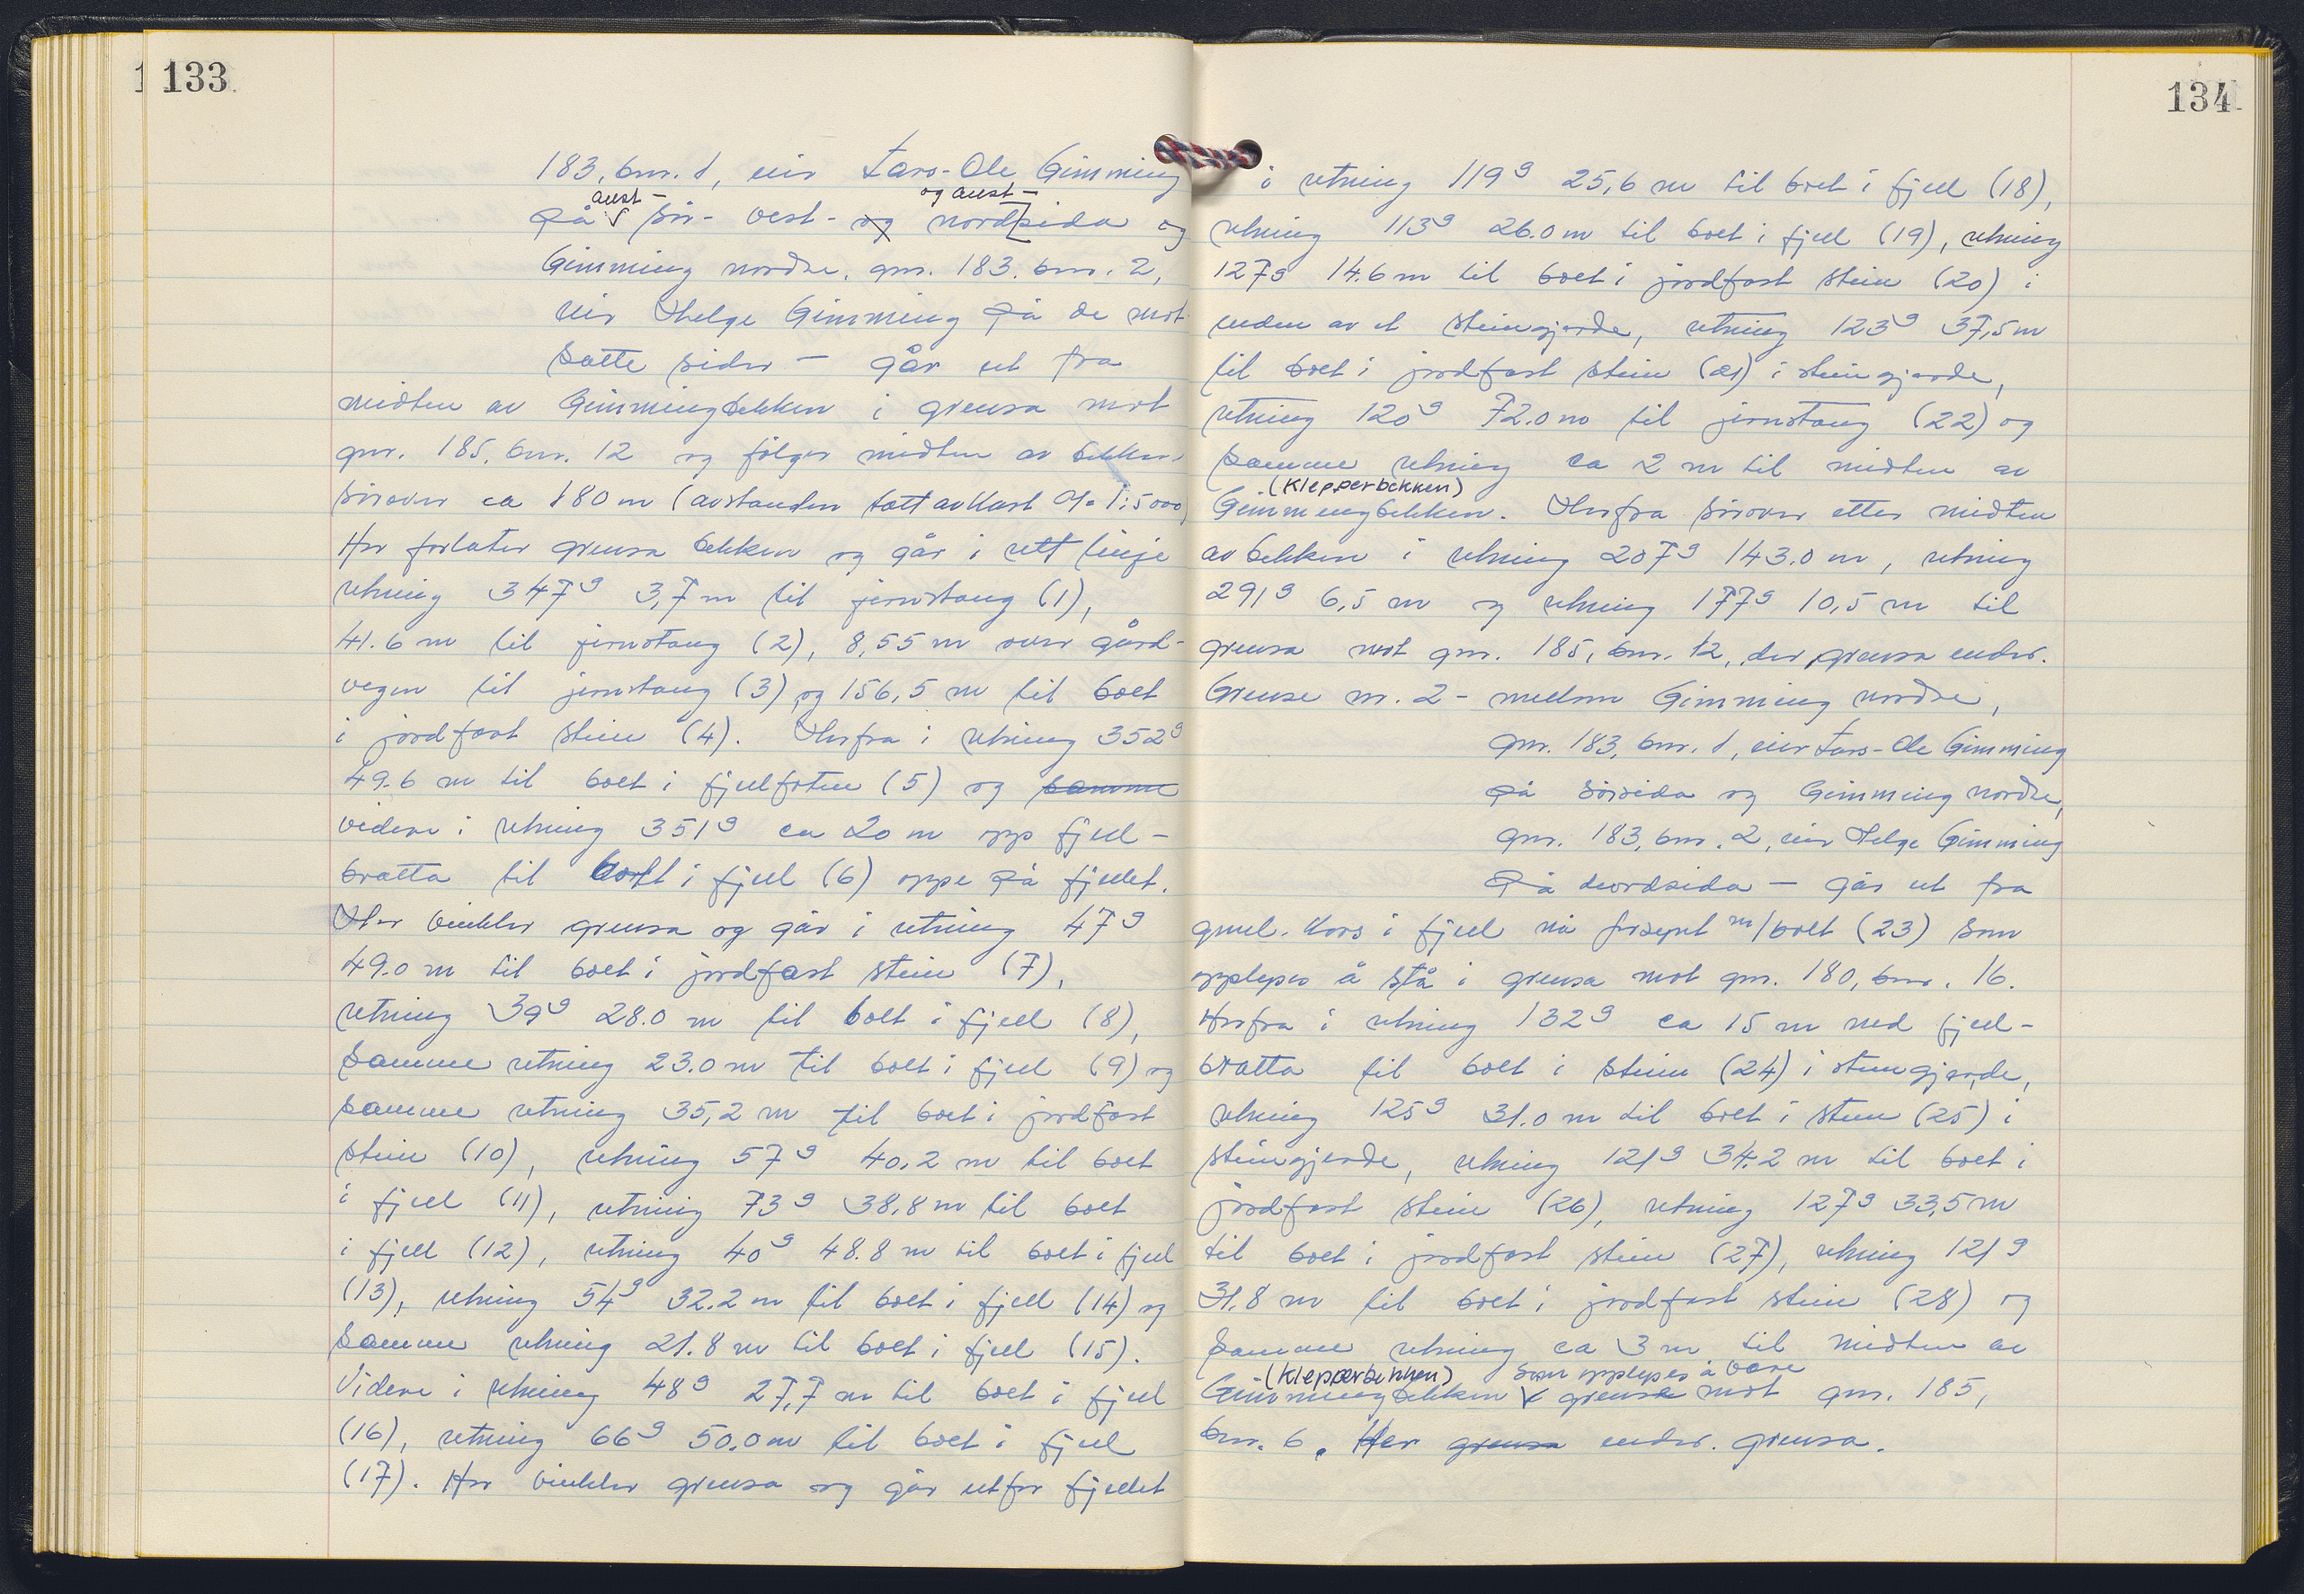 133
183, bnr. 1, eier Lars-Ole Gimming
aust- og aust-
på sør- vest- og nordsida og
Gimming nordre, gnr. 183, bnr. 2,
eier Helge Gimming på de mot-
satte sider - går ut fra
midten av Gimmingbekken i grensa mot
gnr. 185, bnr. 12 og følger midten av bekken
sørover ca 180 m (avstanden tatt av kart M= 1:5000)
Her forlater grensa bekken og går i rett linje
retning 347g 3,7 m til jernstang (1),
41.6 m til jernstang (2), 8,55 m over gård-
vegen til jernstang (3) og 156,5 m til bolt
i jordfast stein (4). Herfra i retning 352g
49.6 m til bolt i fjellfoten (5) og samme
videre i retning 351g ca 20 m opp fjell-
bratta til bolt i fjell (6) oppe på fjellet.
Her vinkler grensa og går i retning 47g
49.0 m til bolt i jordfast stein (7),
retning 39g 28.0 m til bolt i fjell (8),
samme retning 23.0 m til bolt i fjell (9) og
samme retning 35,2 m til bolt i jordfast
stein (10), retning 57g 40.2 m til bolt
i fjell (11), retning 73g 38,8 m til bolt
i fjell (12), retning 40g 48.8 m til bolt i fjell
(13), retning 54g 32.2 m til bolt i fjell (14) og
samme retning 21.8 m til bolt i fjell (15).
Videre i retning 48g 27,7 m til bolt i fjell
(16), retning 66g 50.0 m til bolt i fjell
(17). Her vinkler grensa og går utfor fjellet
134
i retning 119g 25,6 m til bolt i fjell (18),
retning 113g 26.0 m til bolt i fjell (19), retning
127g 14.6 m til bolt i jordfast stein (20) i
enden av et steingjerde, retning 123g 37,5 m
til bolt i jordfast stein (21) i steingjerde,
retning 120g 72.0 m til jernstang (22) og
samme retning ca 2 m til midten av
(Klepperbekken)
Gimmingbekken. Herfra sørover etter midten
av bekken i retning 207g 143.0 m, retning
291g 6,5 m og retning 177g 10,5 m til
grensa mot gnr. 185, bnr. 12, der grensa ender.
Grense nr. 2 - mellom Gimming nordre,
gnr. 183, bnr. 1, eier Lars-Ole Gimming
på sørsida og Gimming nordre,
gnr. 183, bnr. 2, eier Helge Gimming
på nordsida - går ut fra
gml. kors i fjell nå forsynt m/bolt (23) som
opplyses å stå i grensa mot gnr. 180, bnr. 16.
Herfra i retning 132g ca 15 m ned fjell-
bratta til bolt i stein (24) i steingjerde,
retning 125g 31.0 m til bolt i stein (25) i
steingjerde, retning 121g 34.2 m til bolt i
jordfast stein (26), retning 127g 33,5 m
til bolt i jordfast stein (27), retning 121g
31,8 m til bolt i jordfast stein (28) og
samme retning ca 3 m til midten av
(Klepperbekken) som opplyses å være
Gimmingbekken i grensa mot gnr. 185,
bnr. 6. Her grensa ender grensa.